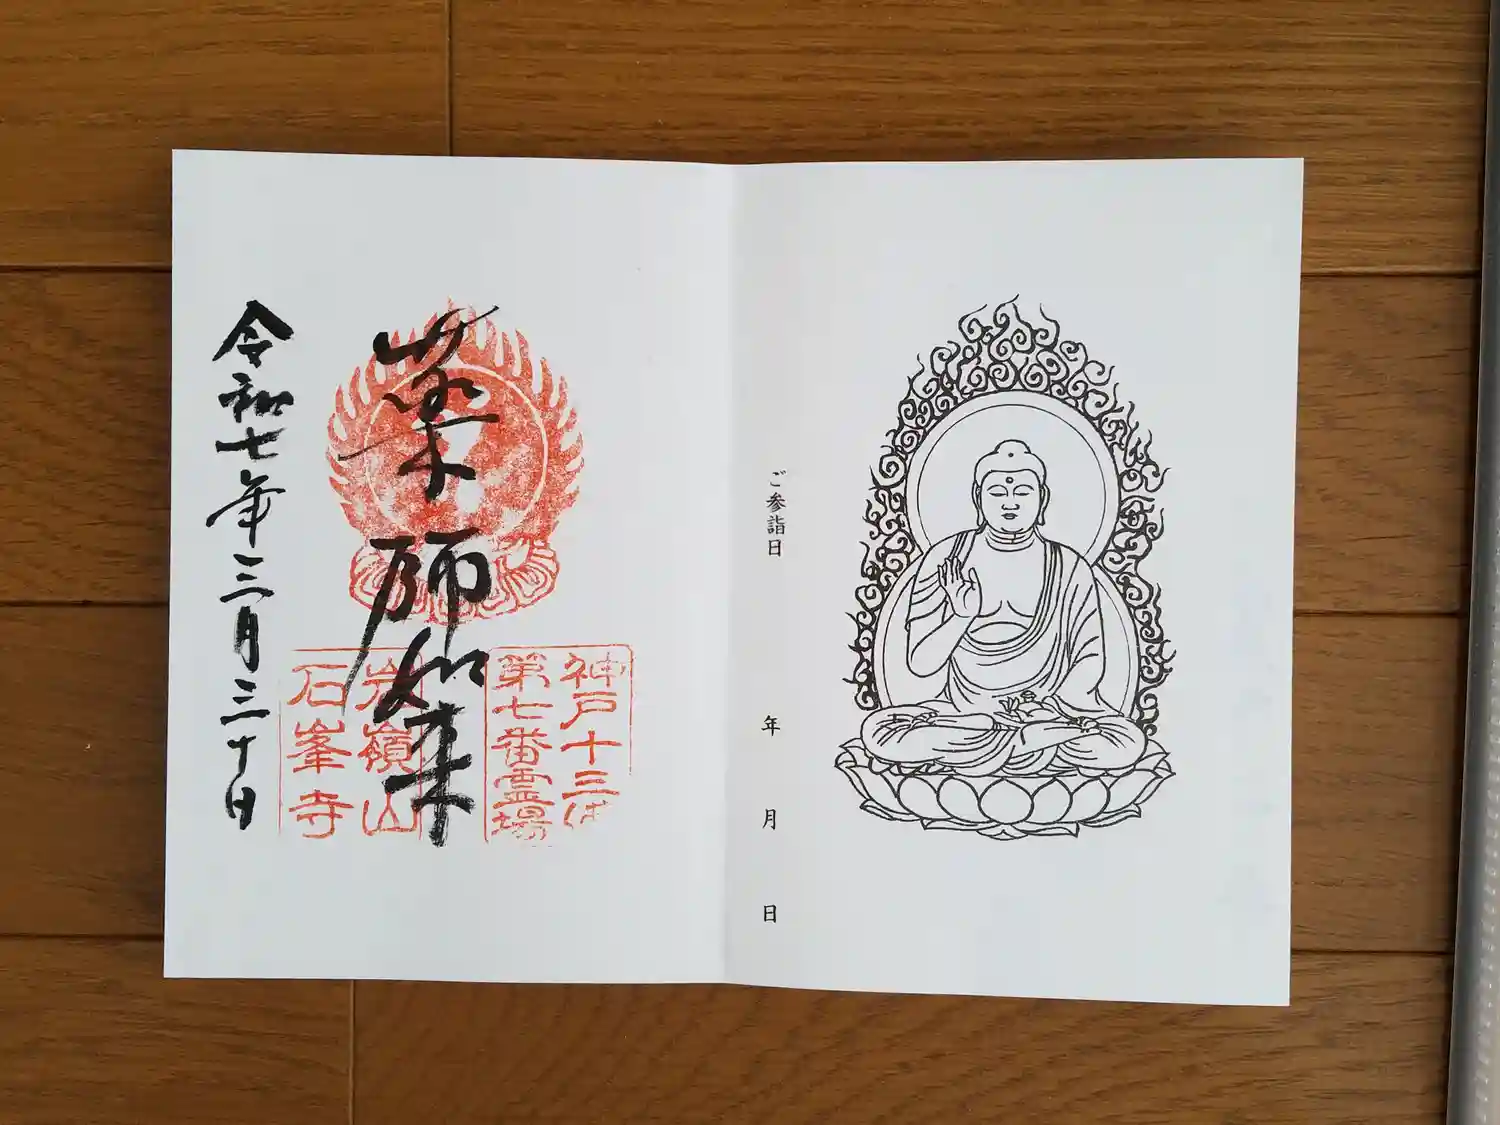 ご参詣日　年　月　日
神戸十三仏
第七番霊場
薬師如来
岩嶺山
石峯寺
令和七年三月三十日